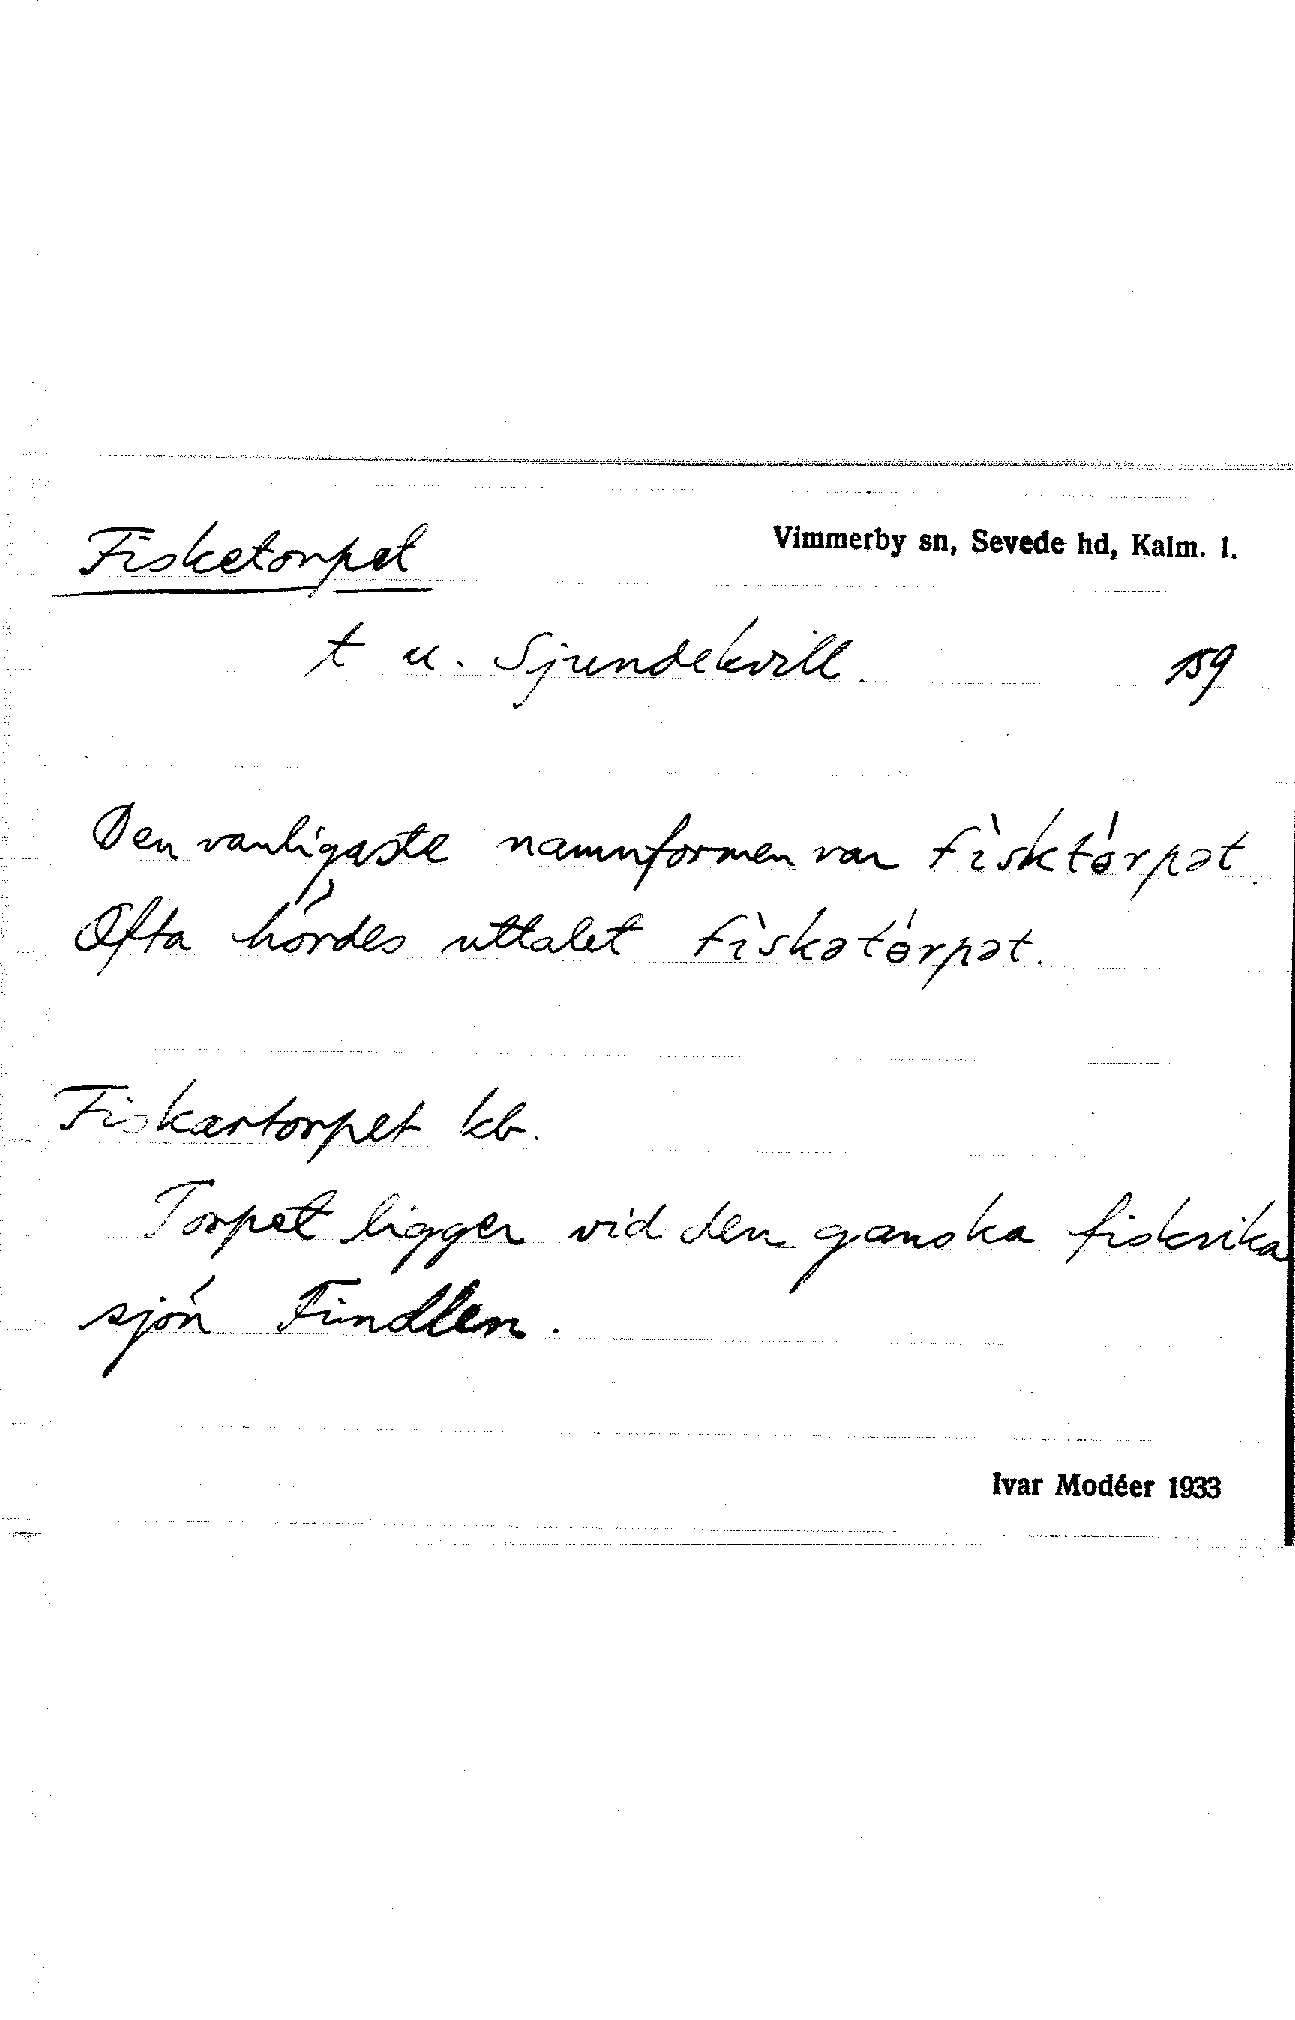 Fisketorpet
Vimmerby sn, Sevede hd, Kalm. l.
t u. Sjundekvill. 159
Den vanligaste namnformen var fìsktɵ́rpət.
Ofta hördes uttalet fìskətɵ́rpət.
Fiskartorpet kb.
Torpet ligger vid den ganska fiskrika
sjön Findlen.
Ivar Modéer 1933